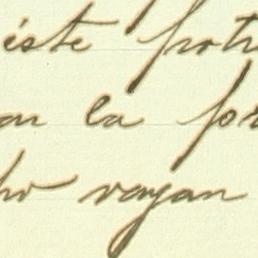 éste potr
an la for
ho vayan